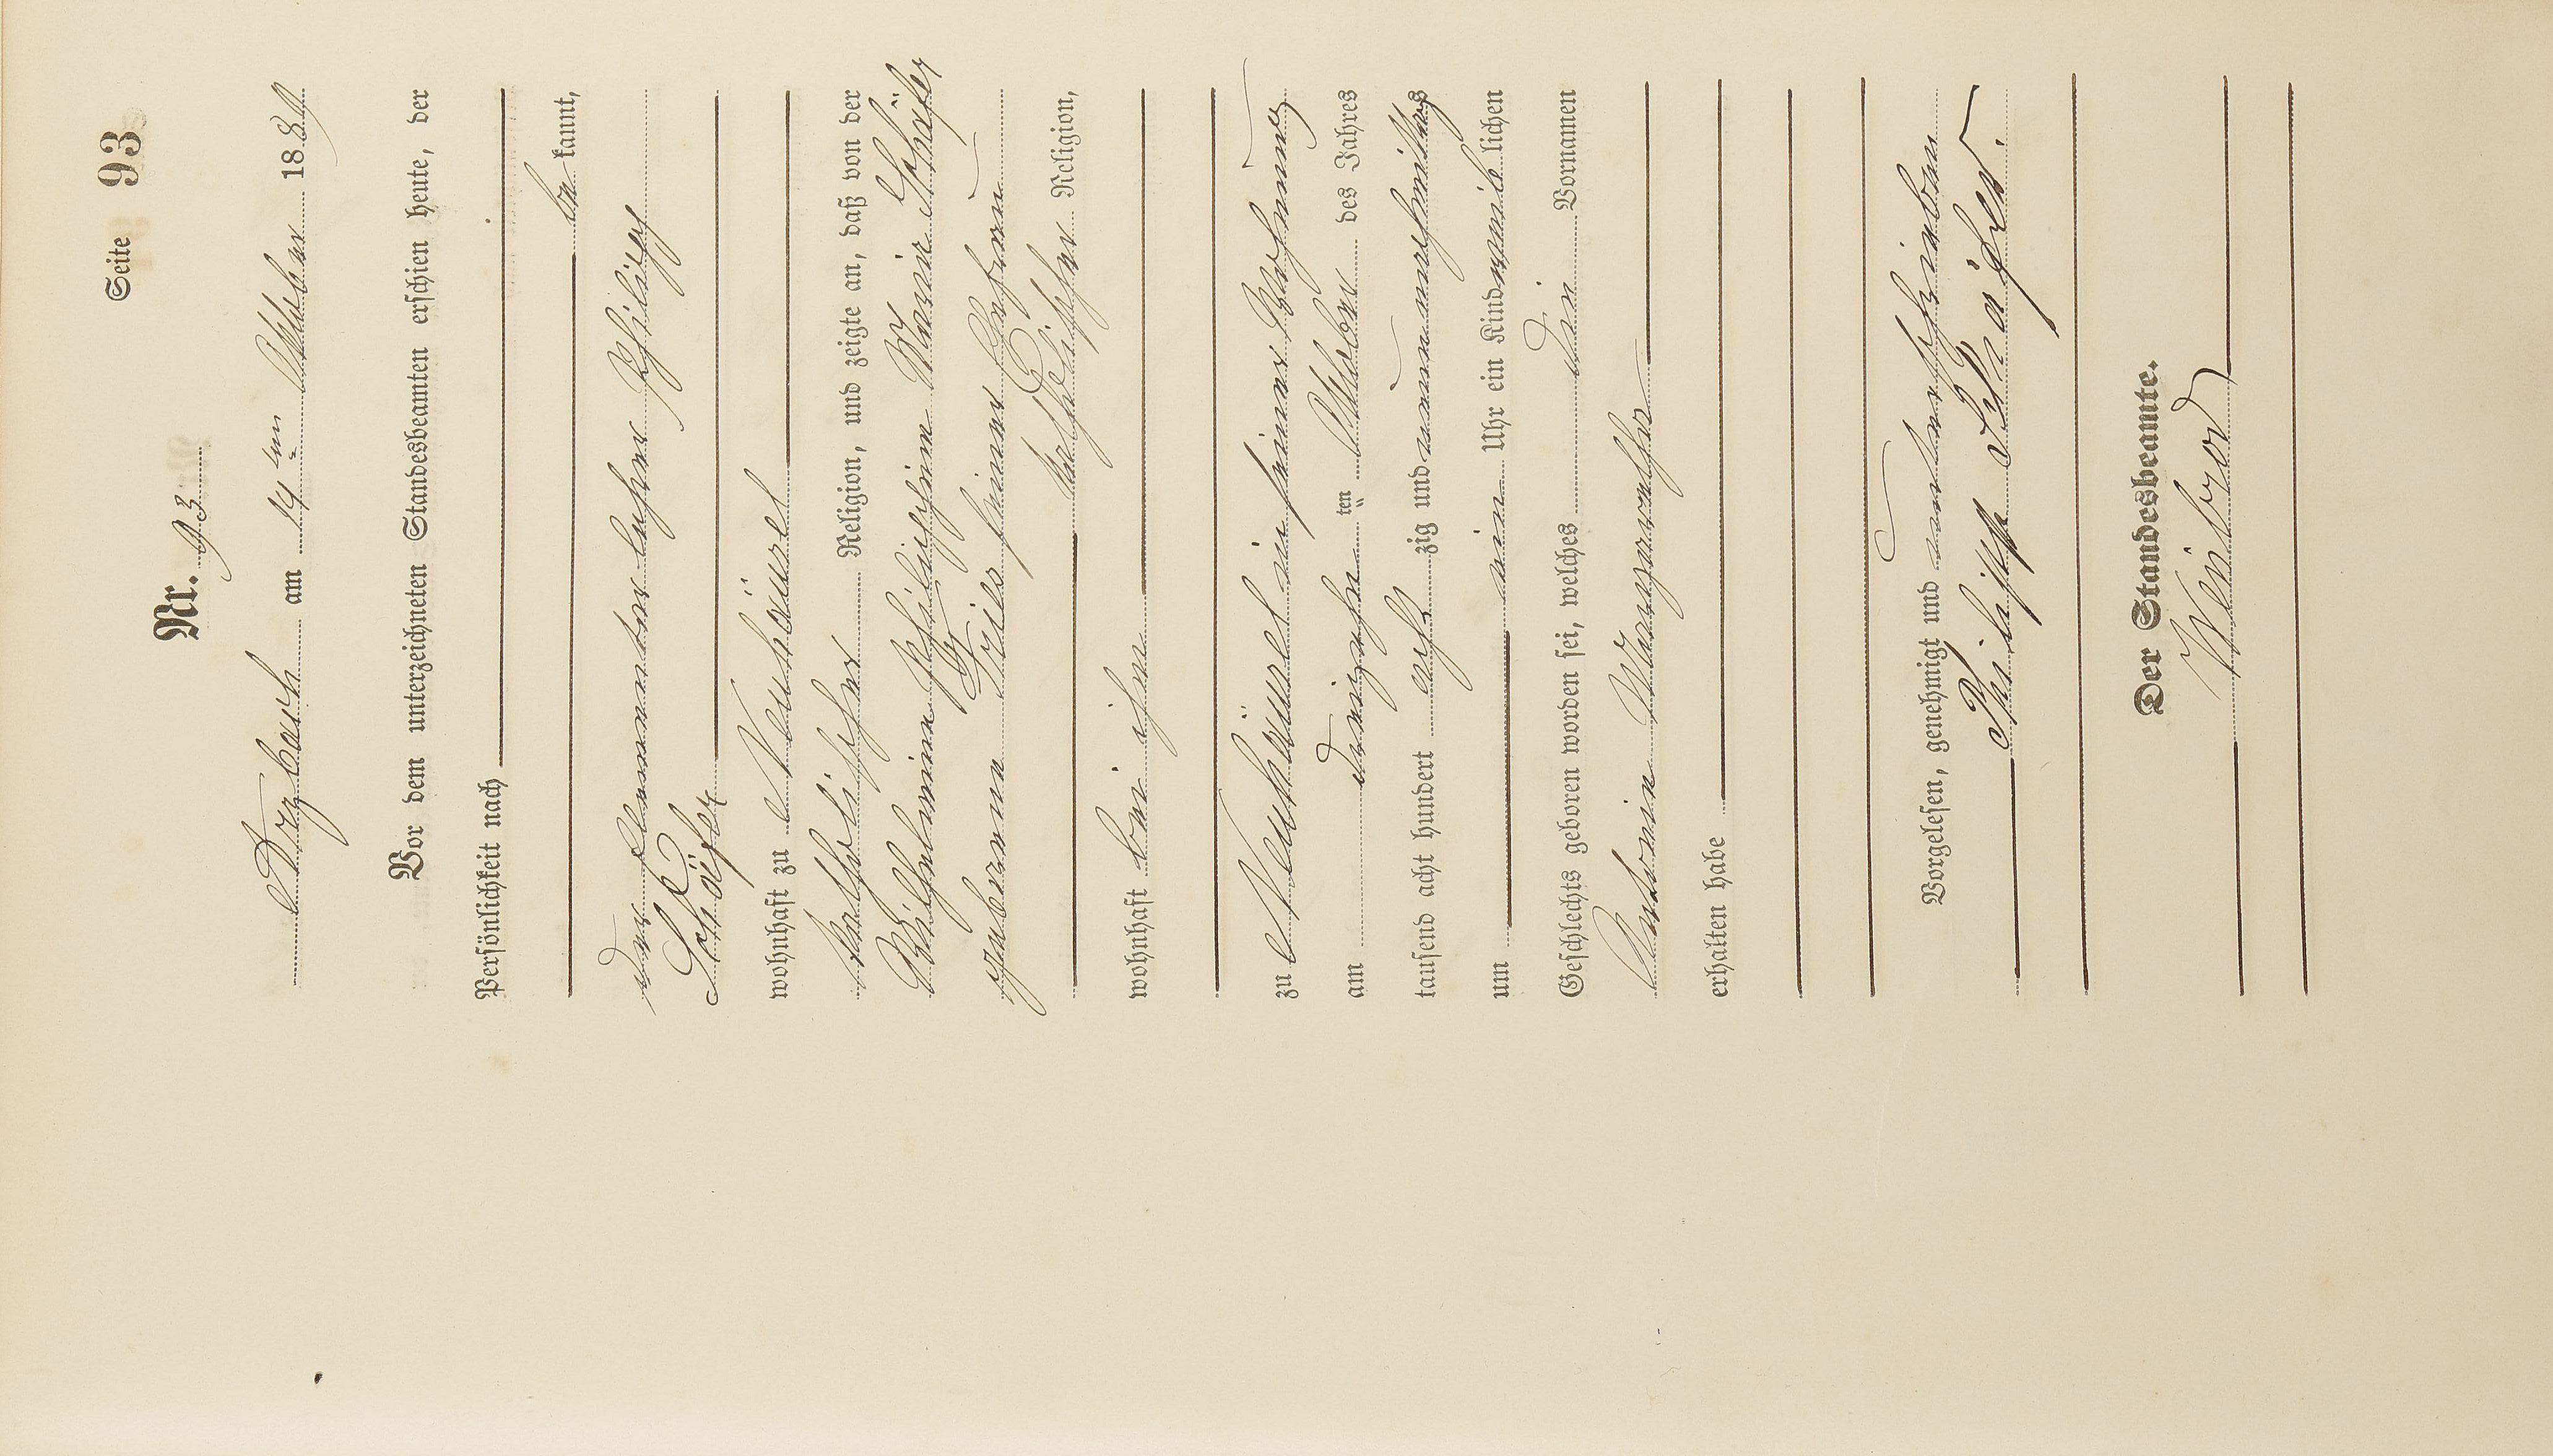 Seite 93
Nr. 93
Arzbach am 14ten Oktober 1889
Vor dem unterzeichneten Standesbeamten erschien heute, der
Persönlichkeit nach
be kannt,
der Elementarlehrer Philipp
Schäfer
wohnhaft zu Neuhäusel
katholischer Religion, und zeigte an, daß von der
Wilhelmine Philippine Maria Schäfer
geborenen Fries seiner Ehefrau
katholischer Religion,
wohnhaft bei ihm
zu Neuhäusel in seiner Wohnung
am dreizehnten Oktober des Jahres
tausend acht hundert achtzig und neun nachmittags
um ein Uhr ein Kind weiblichen
Geschlechts geboren worden sei, welches die Vornamen
Antonie Margarethe
erhalten habe
Vorgelesen, genehmigt und unterschrieben
Philipp Schäfer.
Der Standesbeamte.